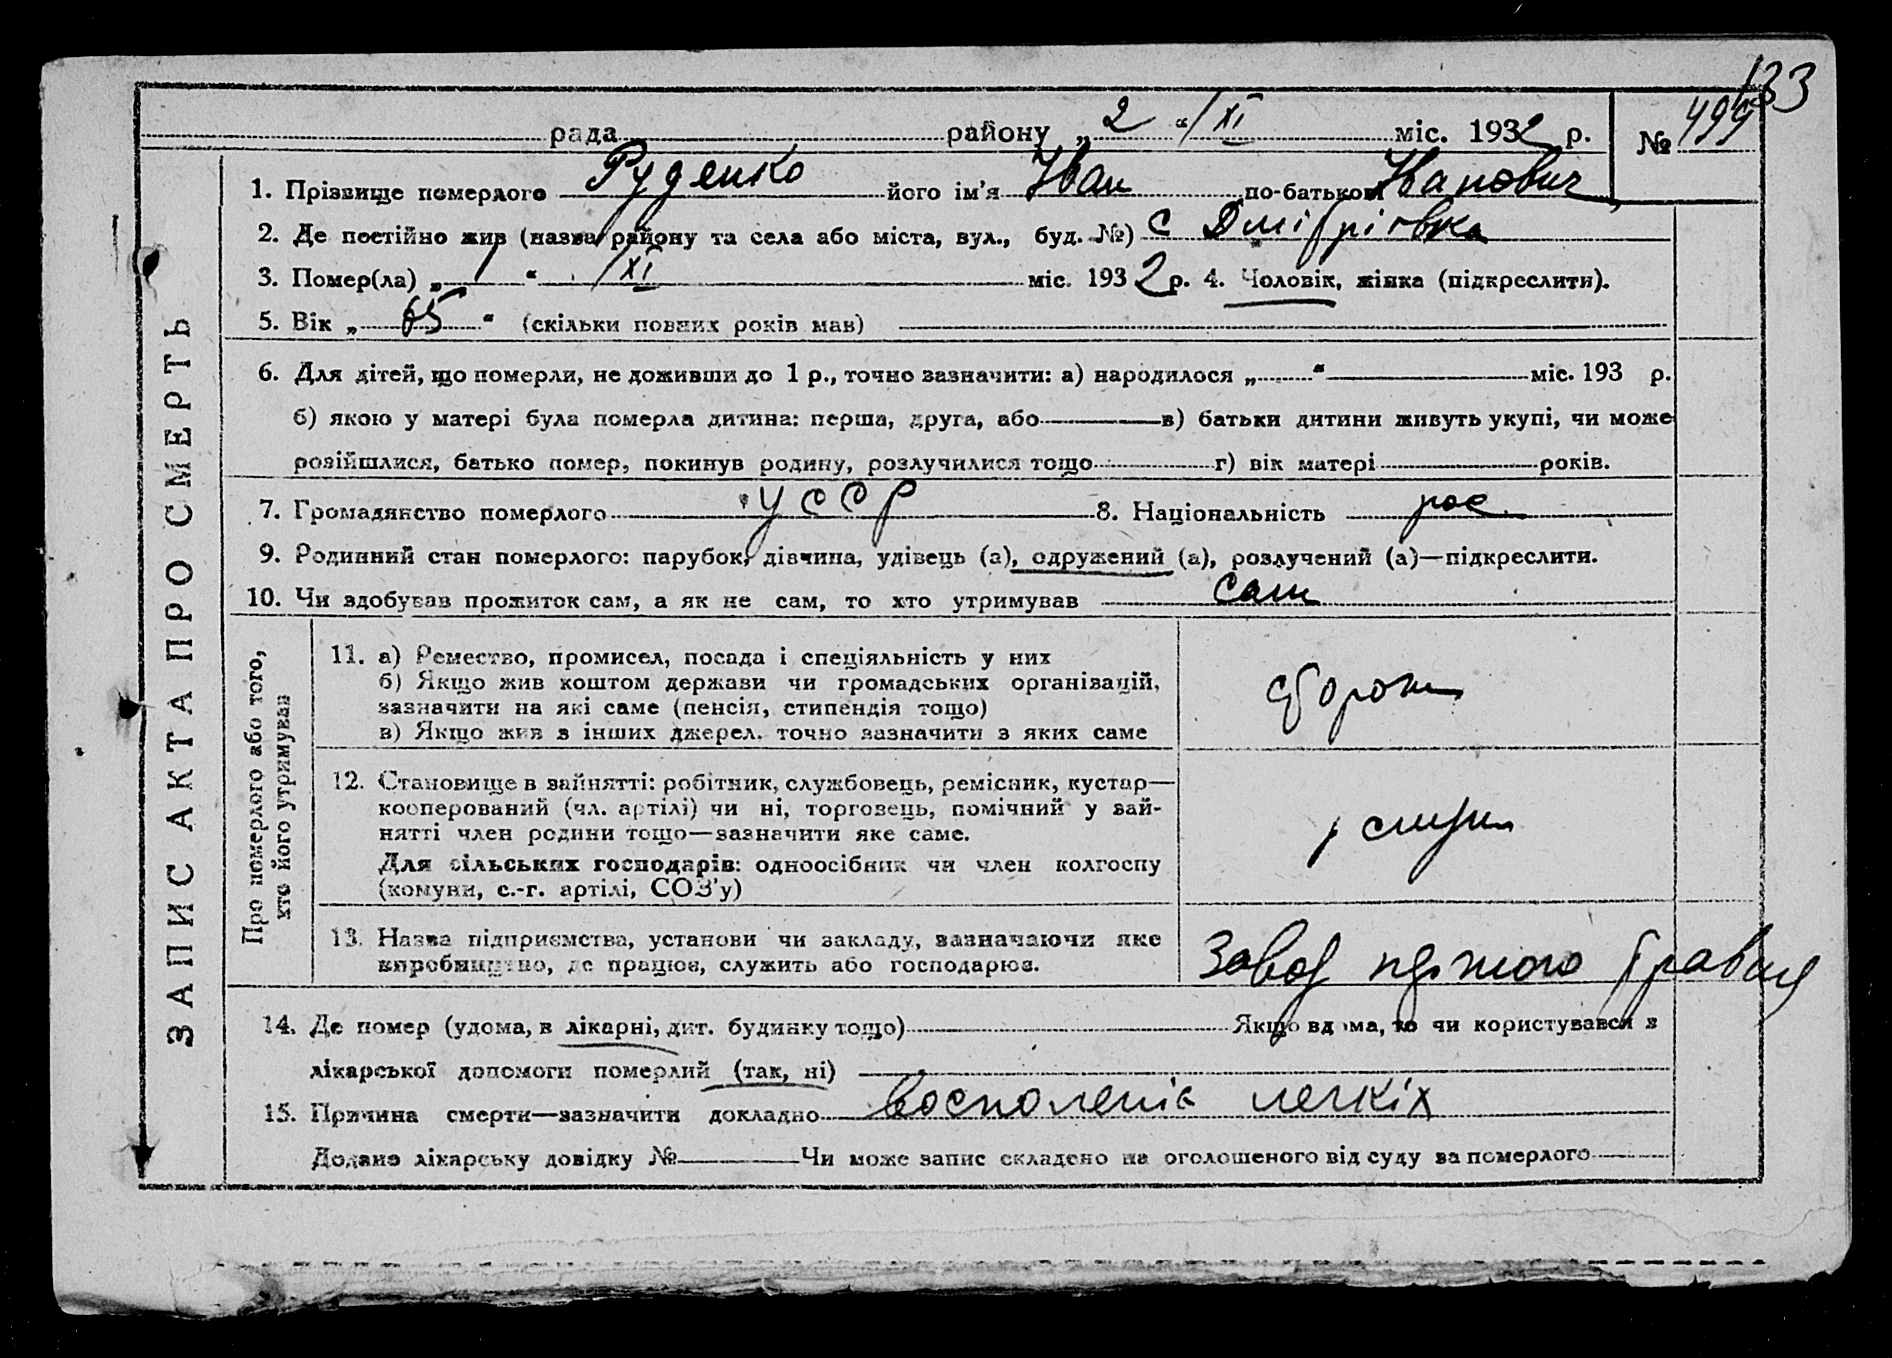 133
рада району „ 2 “ / XI міс. 1932 р. № 499
1. Прізвище померлого Руденко його ім'я Іван по-батькові Іванович
2. Де постійно жив (назва району та села або міста, вул., буд. №) с Дмітрієвка
3. Помер(ла) „ 1 “ / XI міс. 1932 р. 4. Чоловік, жінка (підкреслити).
5. Вік „ 65 “ (скільки повних років мав)
6. Для дітей, що померли, не доживши до 1 р., точно зазначити: а) народилося „ “ міс. 193 р.
б) якою у матері була померла дитина: перша, друга, або в) батьки дитини живуть укупі, чи може
розійшлися, батько помер, покинув родину, розлучилися тощо г) вік матері років.
7. Громадянство померлого УССР 8. Національність рос
9. Родинний стан померлого: парубок, дівчина, удівець (а), одружений (а), розлучений (а)—підкреслити.
10. Чи здобував прожиток сам, а як не сам, то хто утримував сам
ЗАПИС АКТА ПРО СМЕРТЬ
Про померлого або того,
хто його утримував
11. а) Ремество, промисел, посада і спеціяльність у них
б) Якщо жив коштом держави чи громадських організацій,
зазначити на які саме (пенсія, стипендія тощо)
в) Якщо жив з інших джерел, точно зазначити з яких саме
сторож
12. Становище в зайнятті: робітник, службовець, ремісник, кустар—
кооперований (чл. артілі) чи ні, торговець, помічний у зай-
нятті член родини тощо—зазначити яке саме.
Для сільських господарів: одноосібник чи член колгоспу
(комуни, с.-г. артілі, СОЗ'у)
13. Назва підприємства, установи чи закладу, зазначаючи яке
виробництво, де працює, служить або господарює.
Завод
14. Де помер (удома, в лікарні, дит. будинку тощо) Якщо вдома, то чи користувався з
лікарської допомоги померлий (так, ні)
15. Причина смерти—зазначити докладно восполеніє легкіх
Додано лікарську довідку № Чи може запис складено на оголошеного від суду за померлого